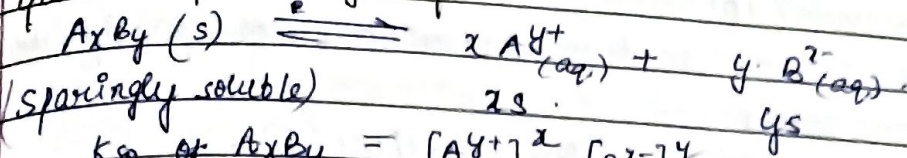 AxBy (s) ⇌ x A^y+ (aq.) + y. B^x- (aq)
(sparingly soluble) xs. ys
Ksp of AxBy = [A^y+]^x [B^x-]^y